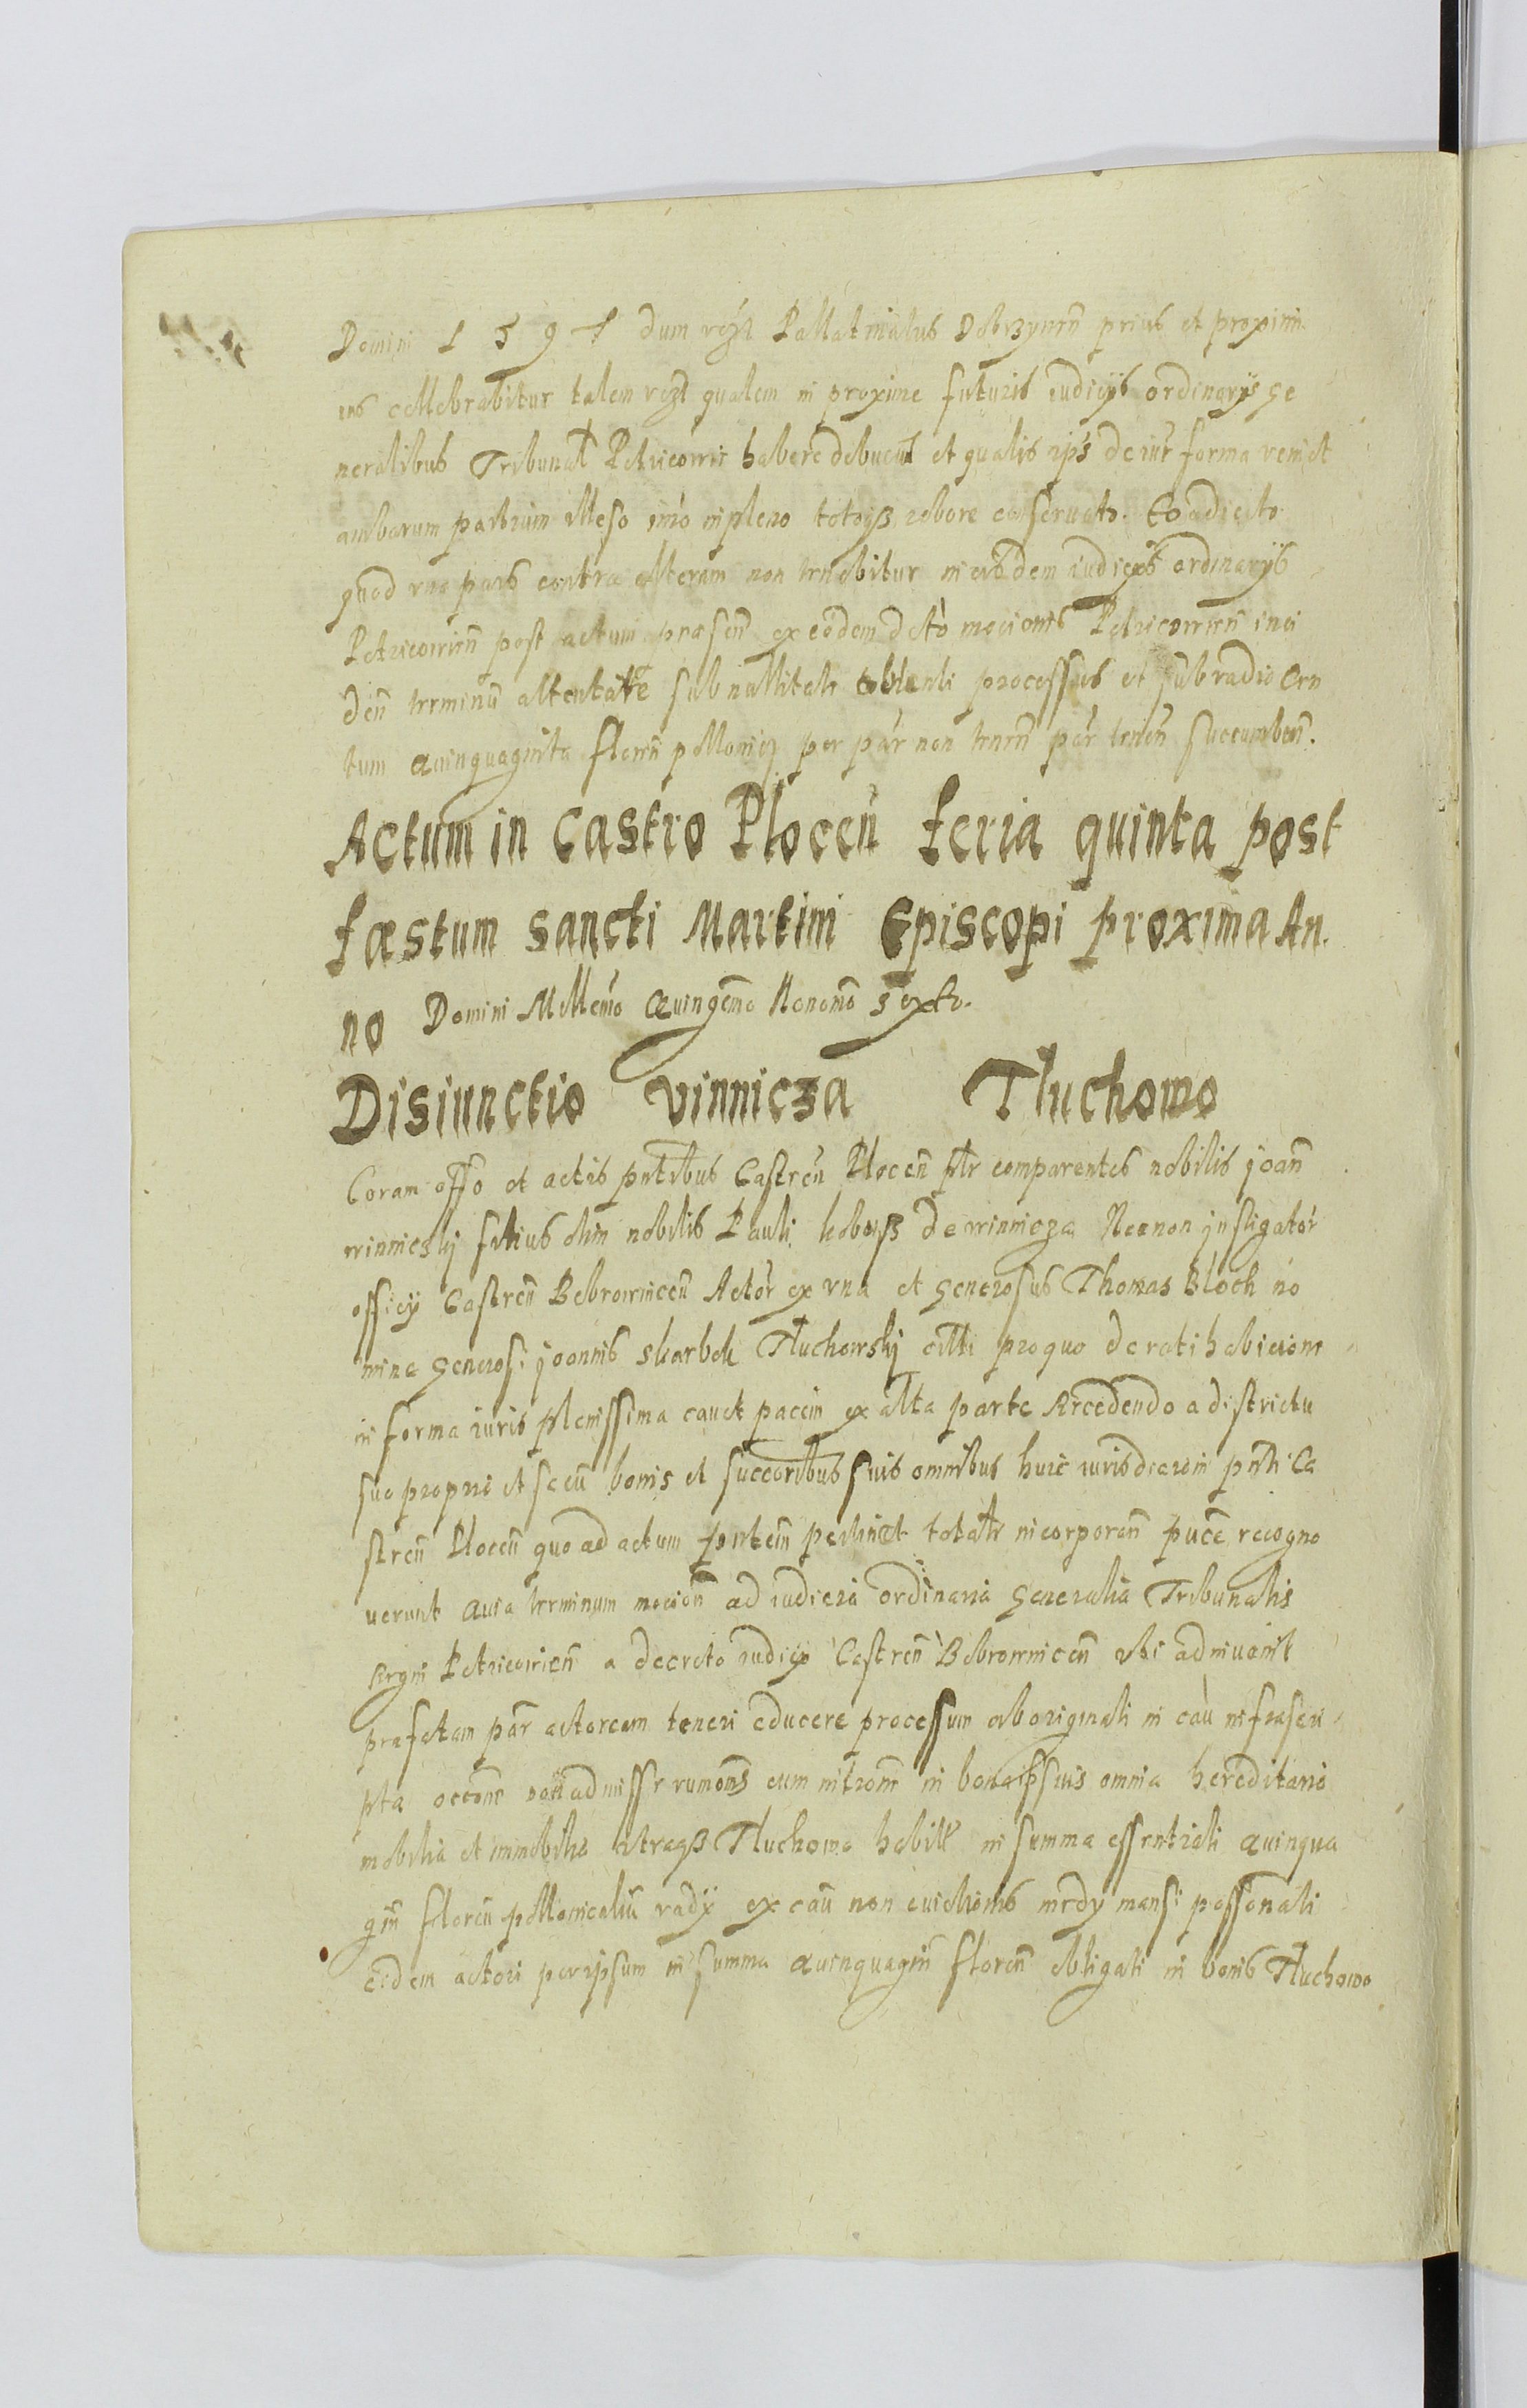 Domini 1 5 9 7 dum regt Pallatinatus Dobrzynen prius et proxim
ius cellebrabitur talem regt qualem in proxime futuris iudicijs ordinarijs ge
neralibus Tribunal Petricovien habere debuerit et qualis ips de iur forma veniet
ambarum partium illeso imo inplero totoqß robore conservato. Eo adiecto
quod una pars contra alteram non tenebitur in eisdem iudicijs ordinarijs
Petricovien post actum præsen ex eodem dcto mocionis Petricovien inci
den terminu attentare sub nullitate obtenti processus et sub vadio Cen
tum Quinquaginta floren pollonicz per par non tenen par tenen succumben.
Actum in Castro Plocen feria quinta post
fæstum sancti Martini Episcopi proxima An.
no Domini Millemo Quingemo Nonomo sexto.
Disiunctio Vinnicza Tluchowo
Coram offo et actis pntibus Castren Plocen pltr comparentes nobilis joan
winniczkj filius olim nobilis Pauli de winnicza Necnon jnstigator
officij Castren Bobrownicen Actor ex vna et Generosus Thomas Bloch no
mine Generosi joannis skarbek Tluchowskj citti pro quo de ratihabicione
in forma iuris plenissima cavet pacem ex alta parte Recedendo a districtu
suo proprio et secu bonis et succoribus suis omnibus huic iurisdicioni pnti Ca
stren Plocen quo ad actum pntem pertinet totaltr incorporan puce recogno
uerunt Quia terminum mocion ad iudicia ordinaria Generalia Tribunalis
Regni Petricovien a decreto iudicij Castren Bobrownicen ubi adinvenit
præfatam par actoream teneri educere processum ab originali in cau infrascri
pta occone non admisse rumonis cum introne in bona ipsius omnia hereditaria
mobilia et immobilia utraqß Tluchowo habitt in summa essentiali Quinqua
gin floren pollonicaliu vadij ex cau non evictionis medij mansi possonali
eidem actori per ipsum in summa Quinquagin floren obligati in bonis Tluchowo